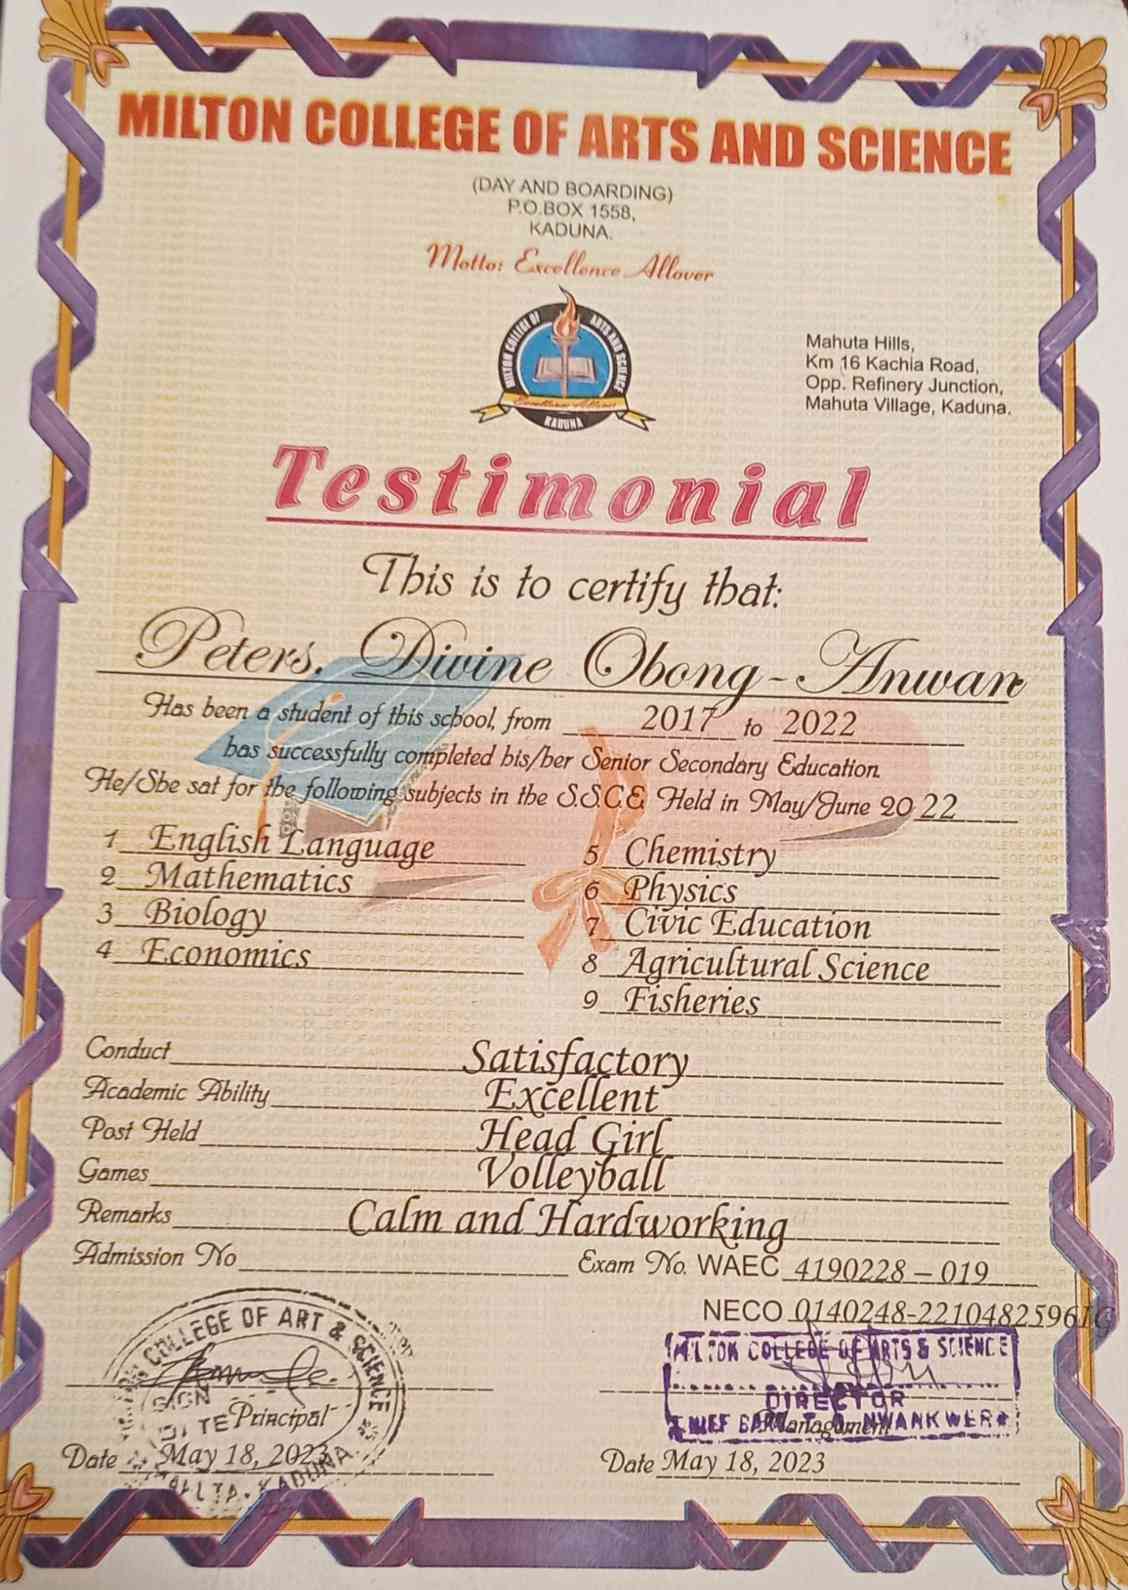 MILTON COLLEGE OF ARTS AND SCIENCE
(DAY AND BOARDING)
P.O.BOX 1558,
KADUNA.
Motto: Excellence Allover
MILTON COLLEGE OF ARTS AND SCIENCE
Excellence Allover
KADUNA
Mahuta Hills,
Km 16 Kachia Road,
Opp. Refinery Junction,
Mahuta Village, Kaduna.
Testimonial
This is to certify that:
Peters, Divine Obong-Anwan
Has been a student of this school, from 2017 to 2022
has successfully completed his/her Senior Secondary Education
He/She sat for the following subjects in the S.S.C.E. Held in May/June 20 22
1 English Language
2 Mathematics
3 Biology
4 Economics
5 Chemistry
6 Physics
7 Civic Education
8 Agricultural Science
9 Fisheries
Conduct Satisfactory
Academic Ability Excellent
Post Held Head Girl
Games Volleyball
Remarks Calm and Hardworking
Admission No
Exam No. WAEC 4190228 – 019
NECO 0140248-2210482596
COLLEGE OF ART & SCIENCE
SIGN
Principal
Date May 18, 2023
KADUNA
MILTON COLLEGE OF ARTS & SCIENCE
DIRECTOR
Management
NWANKWERE
Date May 18, 2023